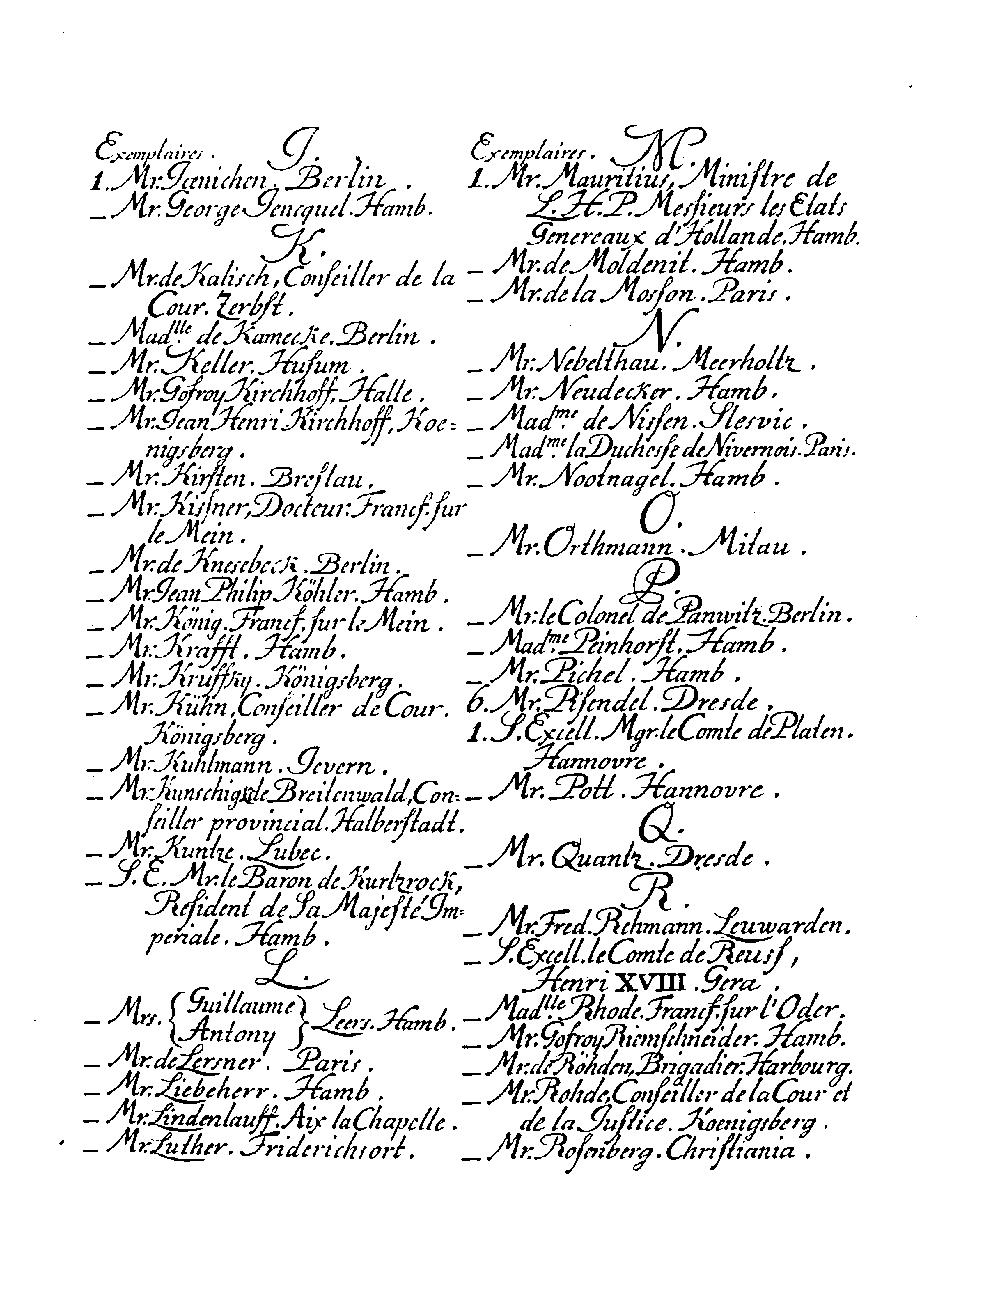 Exemplaires. J.
1. Mr. Jænichen. Berlin.
_ Mr. George Jencquel. Hamb.
K.
_ Mr. de Kalisch, Conſeiller de la
Cour. Zerbſt.
_ Madlle. de Kamecke. Berlin.
_ Mr. Keller. Huſum.
_ Mr. Gofroy Kirchhoff, Halle.
_ Mr. Jean Henri Kirchhoff, Koe=
nigsberg.
_ Mr. Kirſten. Breſlau.
_ Mr. Kiſsner, Docteur. Francf. ſur
le Mein.
_ Mr. de Knesebeck. Berlin.
_ Mr. Jean Philip Köhler. Hamb.
_ Mr. König. Francf. ſur le Mein.
_ Mr. Krafft. Hamb.
_ Mr. Kruſſky. Königsberg.
_ Mr. Kühn, Conſeiller de Cour.
Königsberg.
_ Mr. Kuhlmann. Jevern.
_ Mr. Kunschig de Breitenwald, Con=
ſeiller provincial. Halberſtadt.
_ Mr. Kuntze. Lubec.
_ S. E. Mr. le Baron de Kurtzrock,
Reſident de Sa Majeſté Im=
periale. Hamb.
L.
_ Mrs. { Guillaume Antony } Leers. Hamb.
_ Mr. de Lersner. Paris.
_ Mr. Liebeherr. Hamb.
_ Mr. Lindenlauff. Aix la Chapelle.
_ Mr. Luther. Friderichsort.
Exemplaires. M.
1. Mr. Mauritius, Miniſtre de
L. H. P. Meſsieurs les Etats
Genereaux d'Hollande. Hamb.
_ Mr. de Moldenit. Hamb.
_ Mr. de la Moſson. Paris.
N.
_ Mr. Nebelthau. Meerholtz.
_ Mr. Neudecker. Hamb.
_ Madme. de Niſsen. Slesvic.
_ Madme. la Ducheſse de Nivernois. Paris.
_ Mr. Nootnagel. Hamb.
O.
_ Mr. Orthmann. Mitau.
P.
_ Mr. le Colonel de Panwitz. Berlin.
_ Madme. Peinhorſt. Hamb.
_ Mr. Pichel. Hamb.
6. Mr. Piſendel. Dresde.
1. S. Excell. Mgr. le Comte de Platen.
Hannovre.
_ Mr. Pott. Hannovre.
Q.
_ Mr. Quantz. Dresde.
R.
_ Mr. Fred. Rehmann. Leuwarden.
_ S. Excell. le Comte de Reuſs,
Henri XVIII. Gera.
_ Madlle. Rhode. Francf. ſur l'Oder.
_ Mr. Gofroy Riemſchneider. Hamb.
_ Mr. de Röhden, Brigadier. Harbourg.
_ Mr. Rohde, Conſeiller de la Cour et
de la Juſtice. Koenigsberg.
_ Mr. Roſenberg. Chriſtiania.